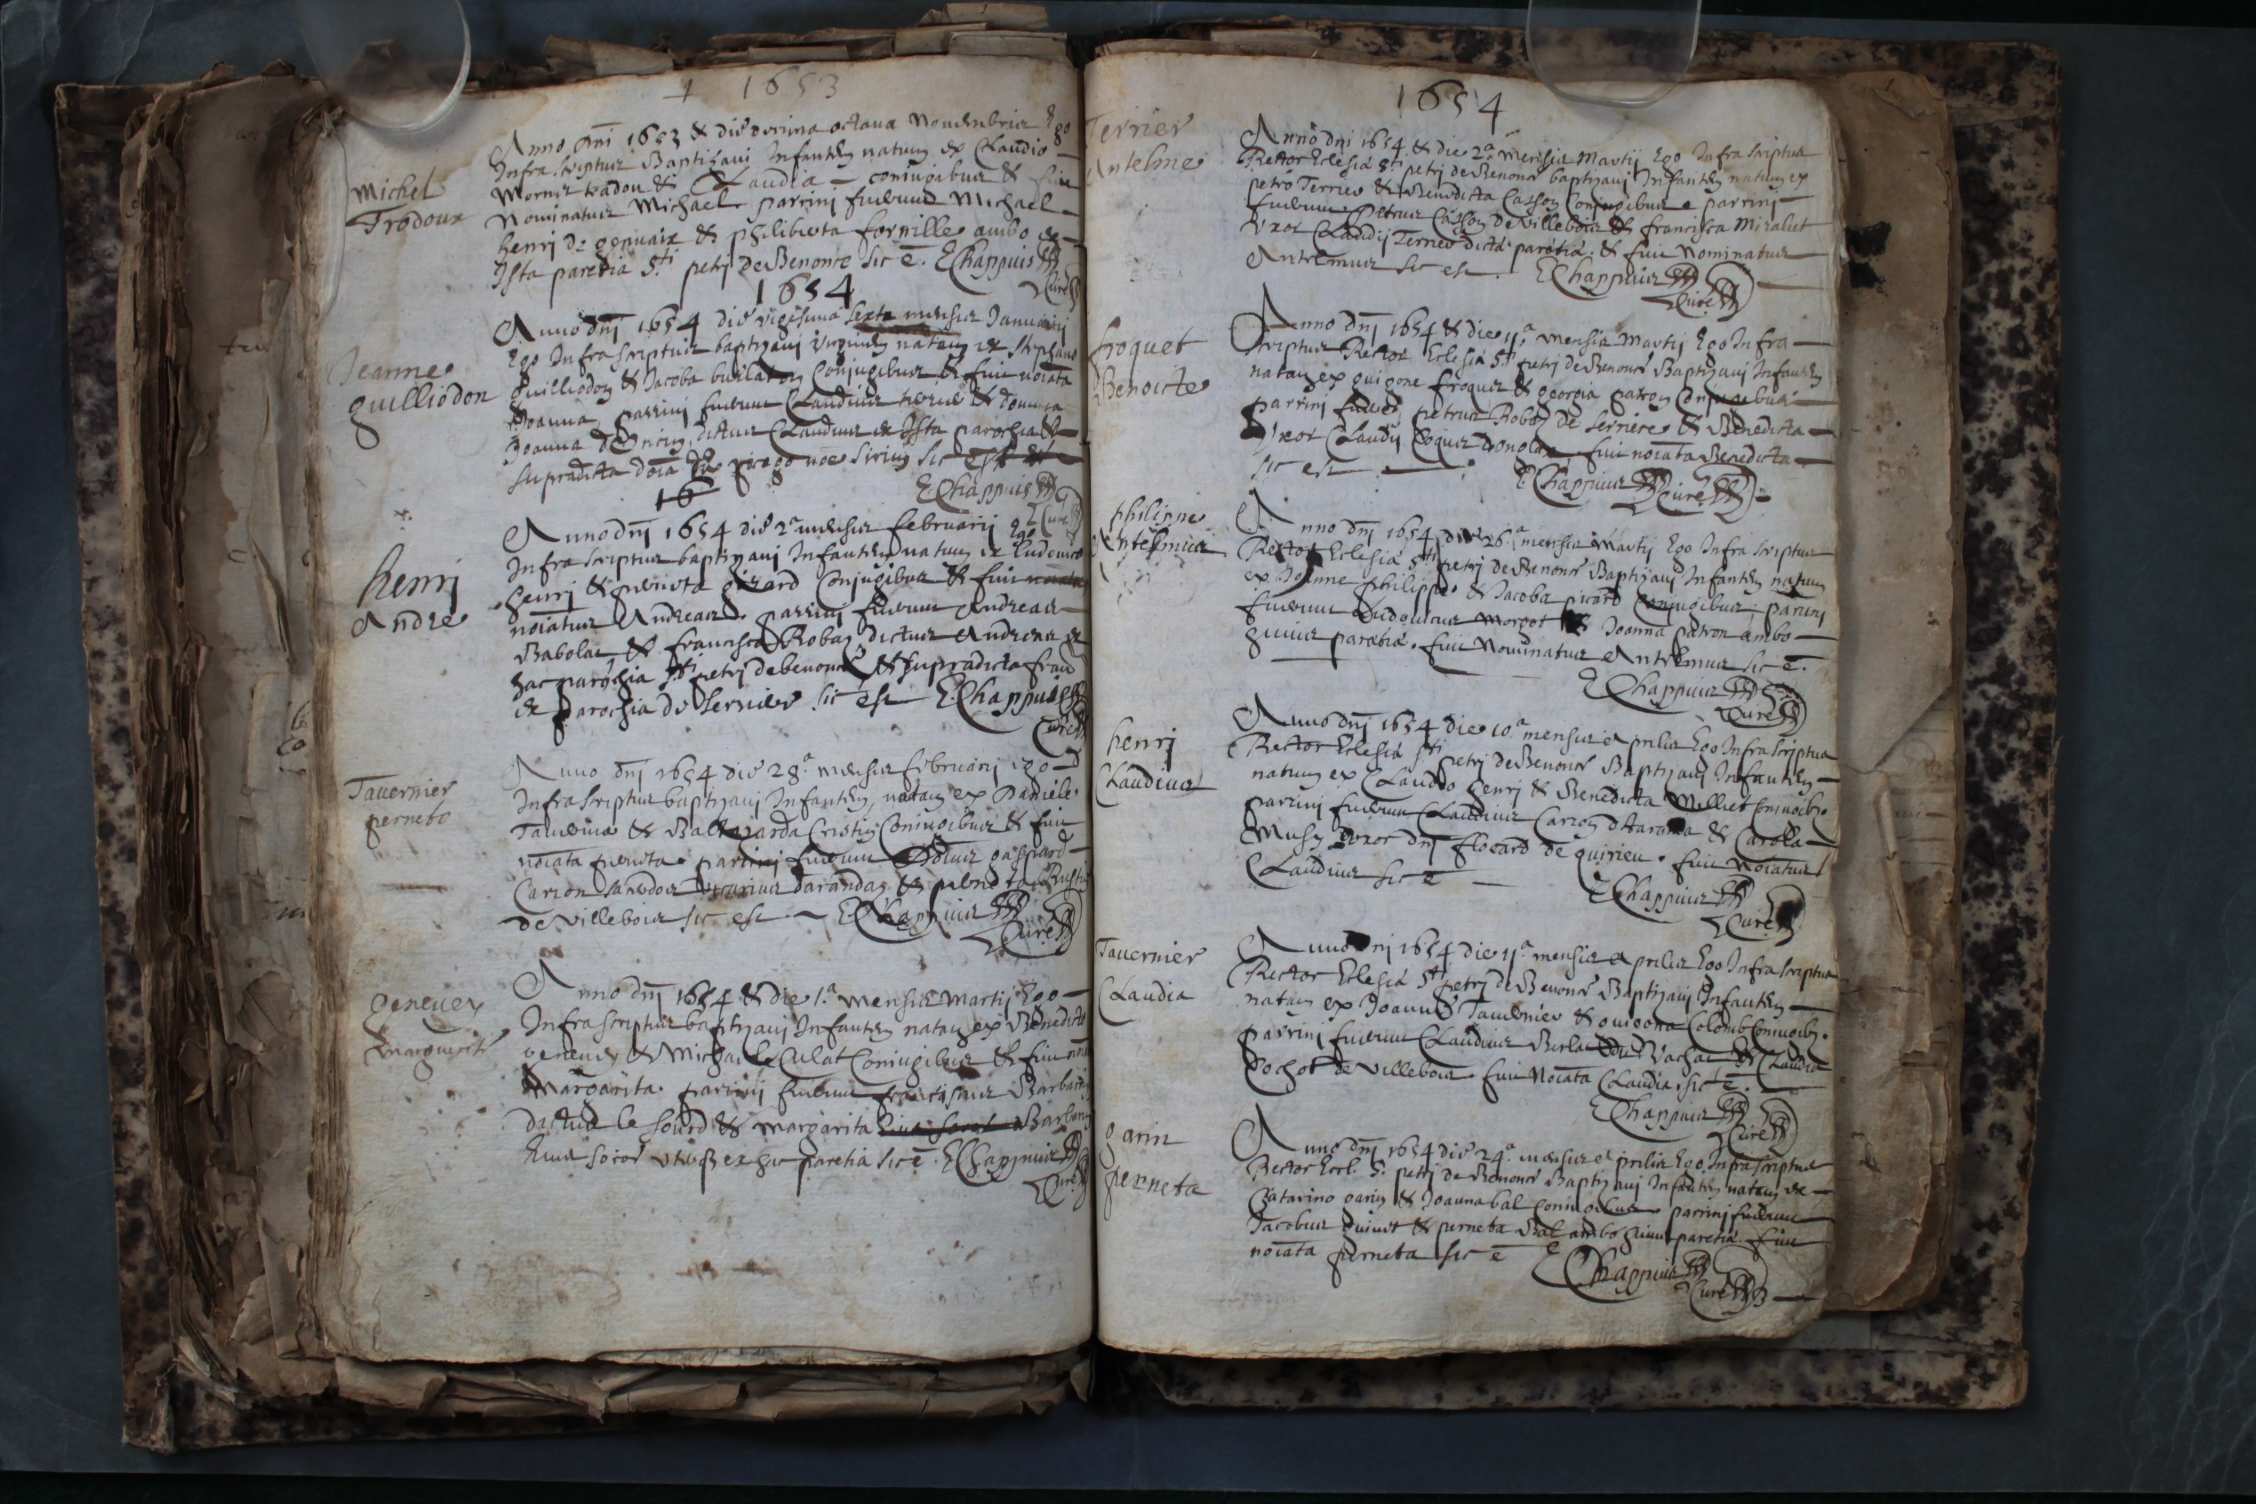 1653
Michel
Trodoux
Anno dnj 1653 & die decima octaua Nouembris Ego
Infra scriptus Baptizaui Infantem natum ex Claudio
tradou & Claudia coniugibus & fuit
Nominatus Michael parrini fuerunt Michael
henri de & philiberta fornille ambo ex
Ista paretia Sti petrj de Benonce sic ē. EChappuis
Curé
1654
Jeanne
guilliodon
Anno dnj 1654 die vigesima sexta mensis Januarij
Ego Infra scriptus baptizaui natam ex stephano
guilliodon & Jacoba Conjugibus & fuit noiata
Joanna parrini fuerunt Claudius & domina
Joanna dictus Claudius ex Ista parochia &
supradicta sic est
EChappuis
Curé
16
henrj
Andre
Anno dnj 1654 die 2a mensis februarij Ego
Infra scriptus baptizaui Infantem natum ex Ludouico
henrj & perneta girard Conjugibus & fuit noiatus
noiatus Andreas parrinj fuerunt Andreas
Babolat & francisca Robaz dictus Andreas ex
hac parochia Sti petrj de benonce & supradicta fran
ex parochia de Serrieres sic est EChappuis
Curé
Tauernier
perneto
Anno dnj 1654 die 28a mensis februarij ego
Infra scriptus baptizaui Infantem natam ex Daniele
Tauernier & Baltazarda Cristin Coniugibus & fuit
noiata perneta parrinj fuerunt gaspard
Carzon vicarius & perneta
de Villebois sic est EChappuis
Curé
geneuey
marguerite
Anno dnj 1654 & die 1a Mensis Martij Ego
Infra scriptus baptizaui Infantem natam ex Benedicto
geneuey & Michaele Culat Coniugibus & fuit
Margarita parrinj fuerunt franciscus
dictus le sourd & Margarita
soror ex hac paretia sic ē. EChappuis
Curé
1654
Terrier
Antelme
Anno dnj 1654 & die 2a mensis Martij Ego Infra scriptus
Rector Eclesiæ Sti petrj de Benonce baptizaui Infantem natum ex
petro Terrier & Benedicta Casson Conjugibus parrini
fuerunt petrus Casson de Villebois & francisca Miralut
Vxor Claudij Terrier dictæ paretiæ & fuit Nominatus
Antelmus sic est. EChappuis
Curé
froquet
Benoicte
Anno dnj 1654 & die 11a mensis Martij Ego Infra
scriptus Rector Eclesiæ Sti petrj de Benonce Baptizaui Infantem
natam ex guigone froquet & georgia patron Conjugibus
parrini fuerunt petrus Robaz de Serriere & Benedicta
Vxor Claudij fuit noiata Benedicta
sic est EChappuis Curé
philippe
Antelmus
Anno dnj 1654 die 26a mensis Martij Ego Infra scriptus
Rector Eclesiæ Sti petrj de Benonce Baptizaui Infantem natum
ex Joanne philippe & Jacoba girard Conjugibus parrinj
fuerunt Ludouicus Morgot & Joanna patron ambo
huius paretiæ fuit Nominatus Antelmus sic ē.
EChappuis
Curé
henrj
Claudius
Anno dnj 1654 die 10a mensis aprilis Ego Infra scriptus
Rector Eclesiæ Sti petrj de Benonce Baptizauj Infantem
natum ex Claudio henrj & Benedicta Milliet Coniugibz
parrinj fuerunt Claudius Carzon & Carola
Musy Vxor dnj flocard de quirieu fuit noiatus
Claudius sic ē
EChappuis
Curé
Tauernier
Claudia
Anno dnj 1654 die 11a mensis aprilis Ego Infra scriptus
Rector Eclesiæ Sti petrj de Benonce Baptizauj Infantem
natam ex Joanne Tauernier & guigona Colomb Coniugibz.
parrinj fuerunt Claudius & Claudia
Cochot de Villebois fuit noiata Claudia sic ē.
EChappuis
Curé
garin
perneta
Anno dnj 1654 die 24a mensis aprilis Ego Infra scriptus
Rector Eccl. S. petrj de Benonce Baptizauj Infantem natam ex
Catarino garin & Joanna bal Coniugibus parrinj fuerunt
Jacobus & perneta Bal ambo huius paretiæ fuit
noiata perneta sic ē EChappuis
Curé